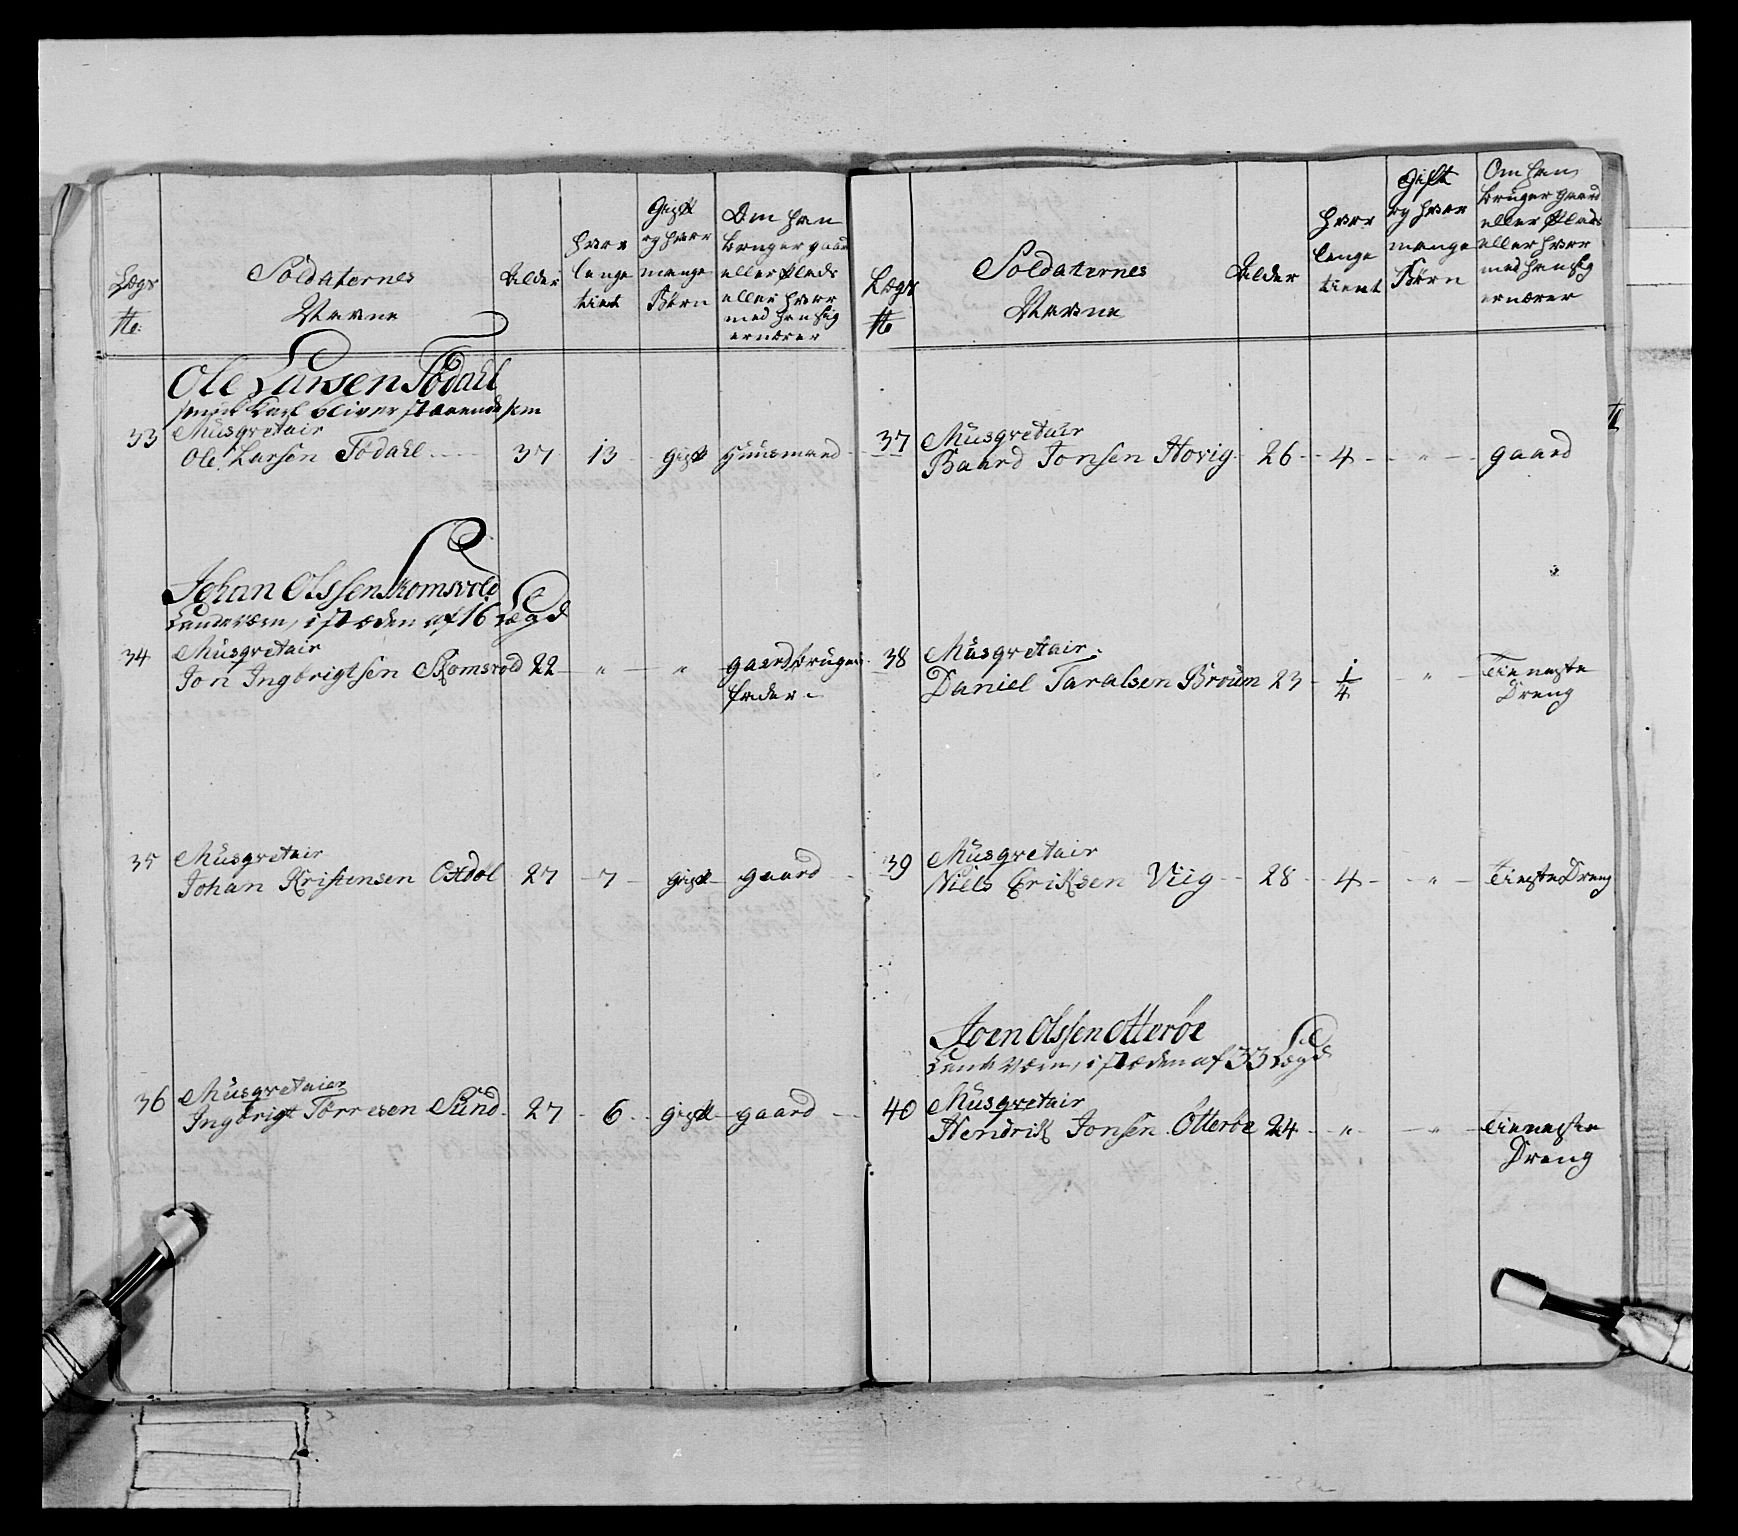 Lægs
No:
Soldaternes
Navne
Alder
hvor
lenge
tient
Gift
og hvor
mange
Børn
Om han
bruger gaard
eller Plads
eller hvor
med han sig
ernærer
Ole Larsen Tødahl
bliver staaende som
33 Musqvetair
Ole Larsen Tødahl 37 13 gift Huusmand
Johan Olssen Komsvold
Landeværn, i stæden af 16 Lægd
34 Musqvetair
Jon Ingbrigtsen Komsvold 22 " " gaardbruger
fader
35 Musqvetair
Johan Kristensen Otdøl 27 7 gift gaard
36 Musqvetaier
Ingbrigt Tørresen Sund 27 6 gift gaard
Lægs
No
Soldaternes
Navne
Alder
hvor
lenge
tient
Gift
og hvor
mange
Børn
Om han
bruger gaard
eller Plads
eller hvor
med han sig
ernærer
37 Musqvetair
Baard Jonsen Hovig 26 4 " gaard
38 Musqvetair
Daniel Taralsen Broum 23 1/4 " Tieneste
Dreng
39 Musqvetair
Niels Eriksen Viig 28 4 " tiensteDreng
Joen Olssen Otterøe
Landeværn, i stæden af 33 Lægd
40 Musqvetair
Hendrik Jonsen Otterøe 24 " " tieneste
Dreng